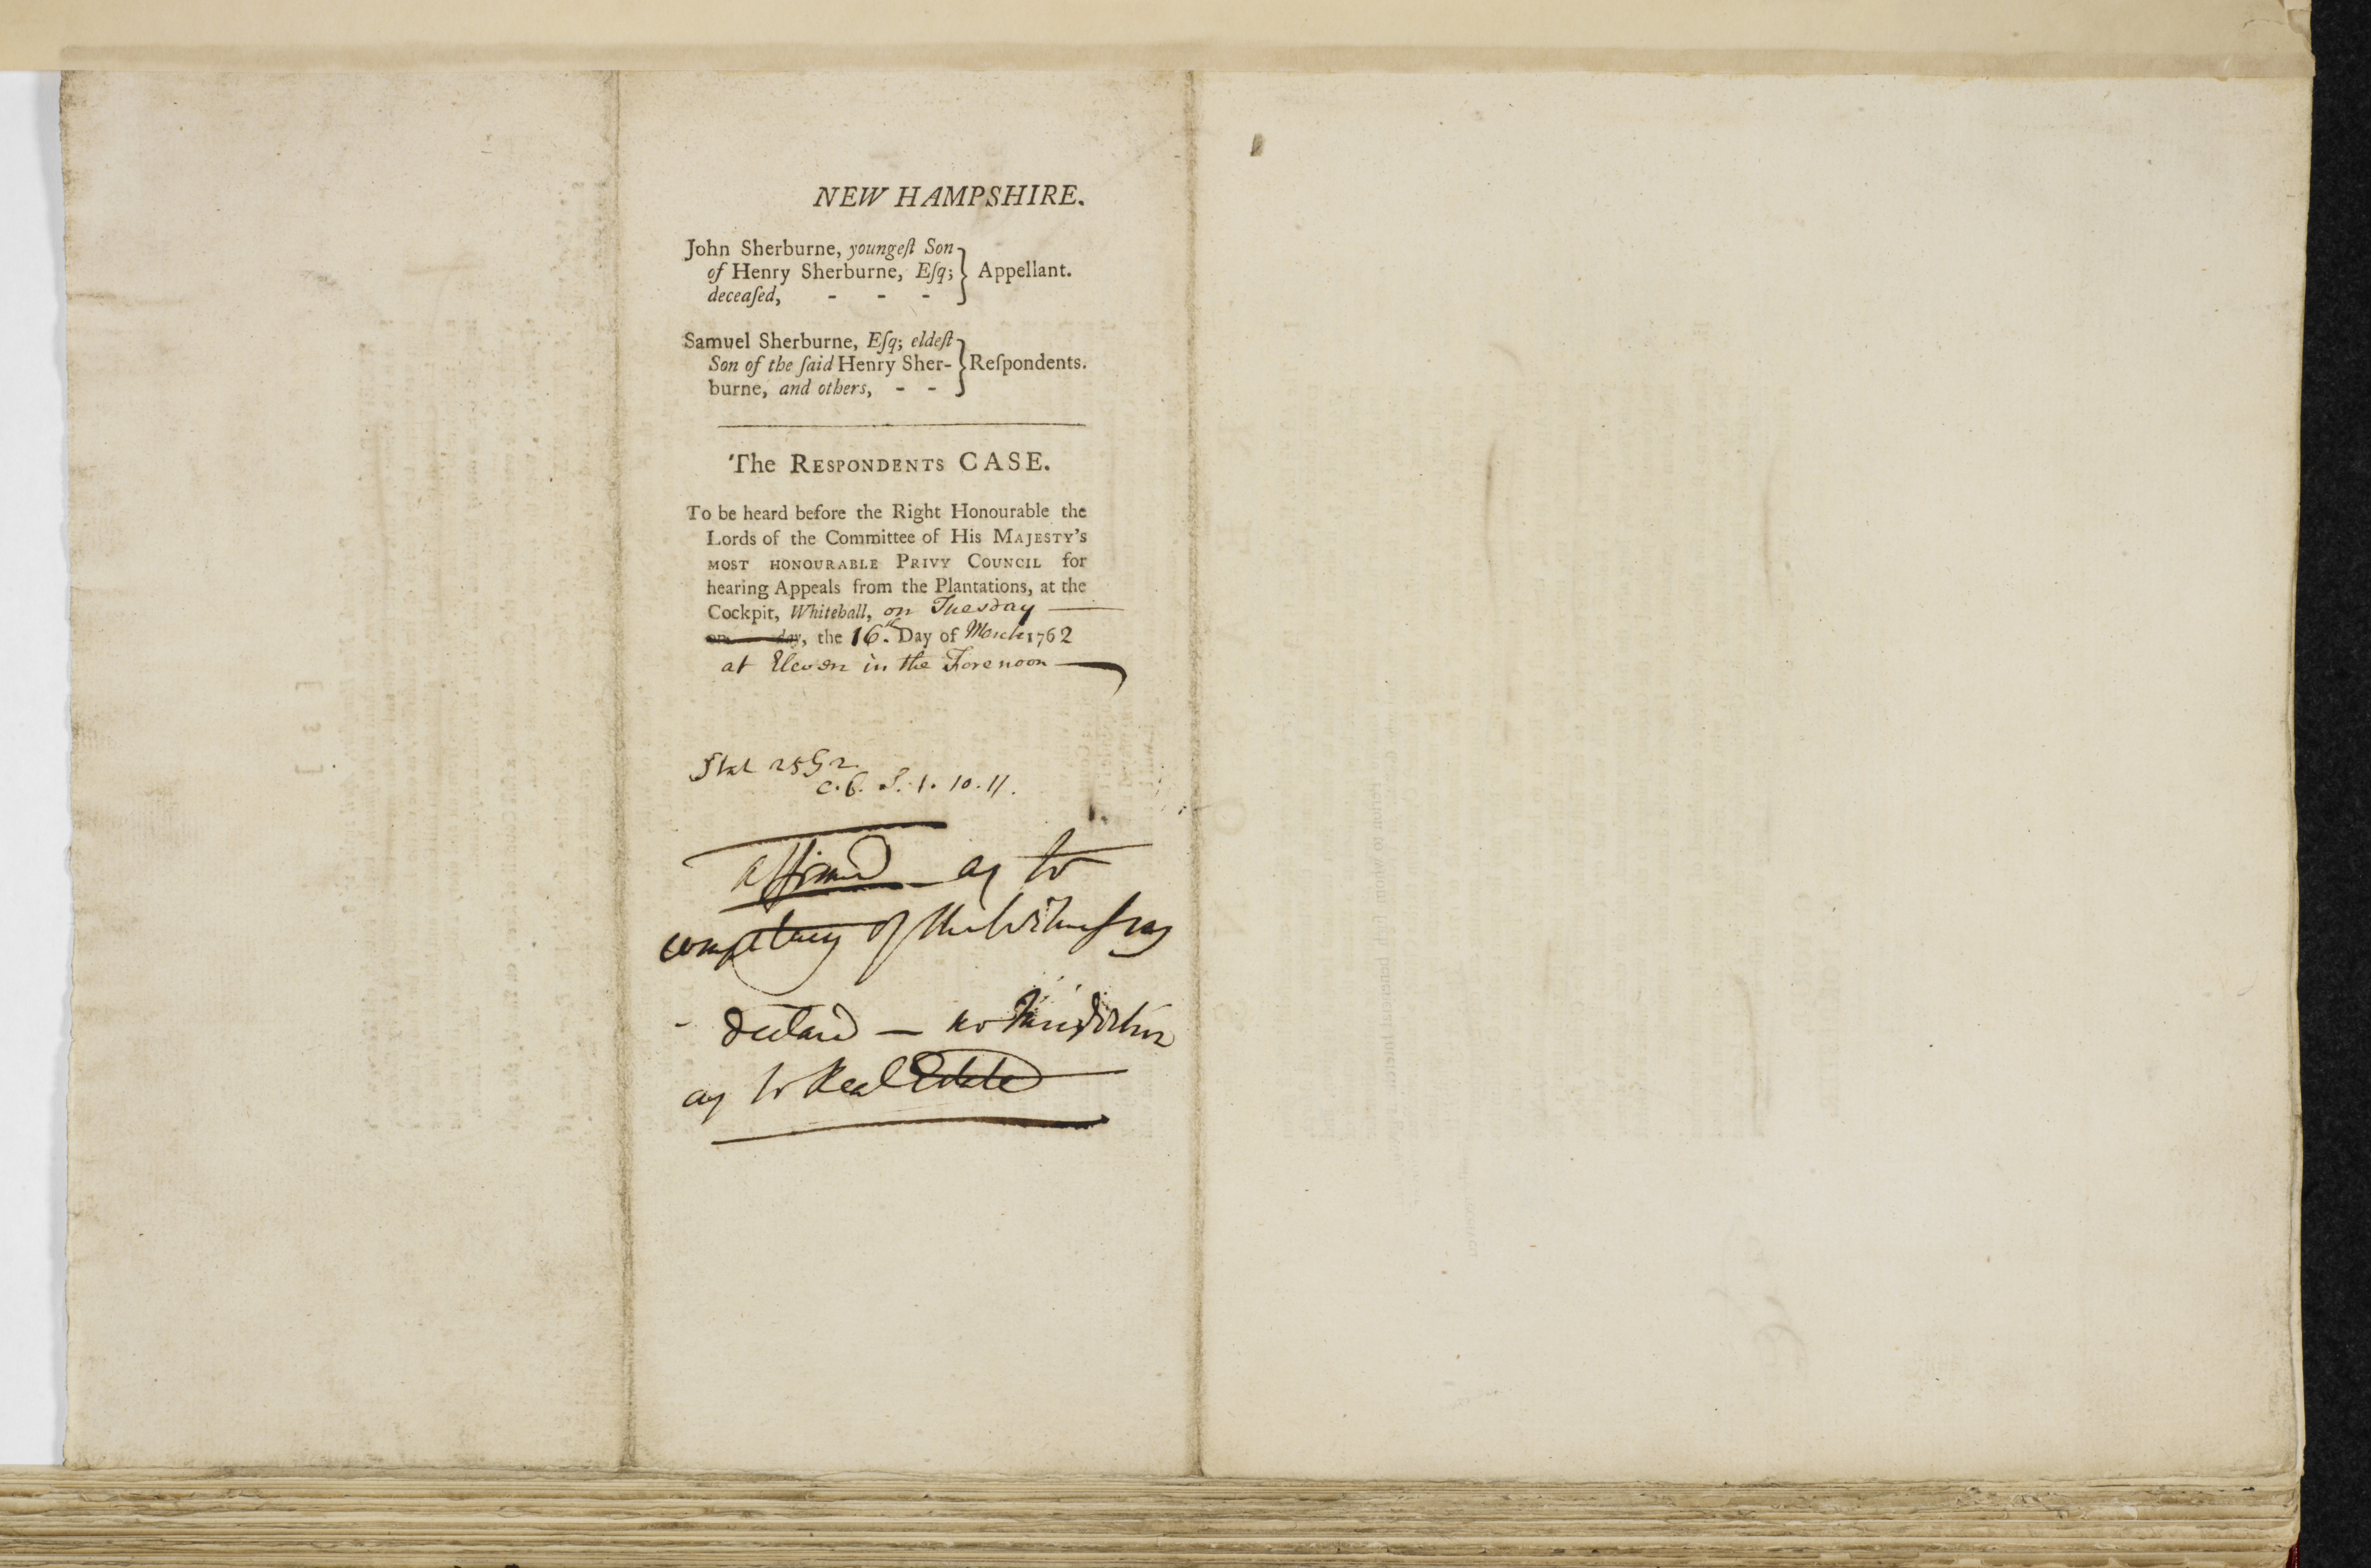 NEW HAMPSHIRE.
John Sherburne, youngeſt Son
of Henry Sherburne, Eſq;
deceaſed, - - -
} Appellant.
Samuel Sherburne, Eſq; eldeſt
Son of the ſaid Henry Sher-
burne, and others, - -
} Reſpondents.
The RESPONDENTS CASE.
To be heard before the Right Honourable the
Lords of the Committee of His MAJESTY'S
MOST HONOURABLE PRIVY COUNCIL for
hearing Appeals from the Plantations, at the
Cockpit, Whitehall, on Tuesday
on day, the 16.th Day of March 1762
at Eleven in the Forenoon
Stat 25 G 2.
c. 6. S. 1. 10. 11.
affirmed as to
competency of the Witnesses
declared — no Jurisdiction
as to Real Estate
[ 3 ]